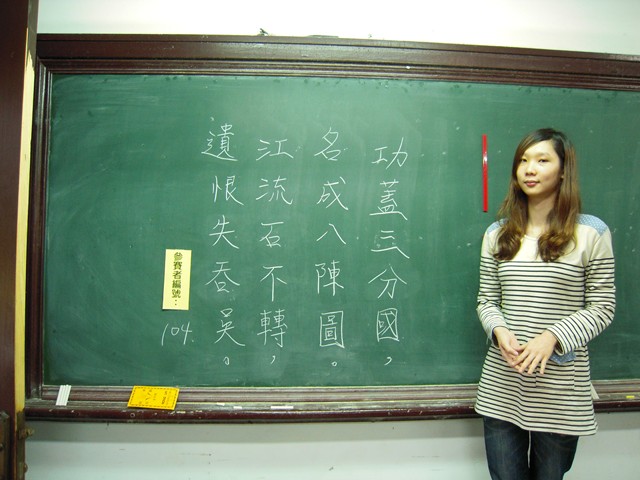 功蓋三分國，
名成八陣圖。
江流石不轉，
遺恨失吞吳。
參賽者編號：
104.